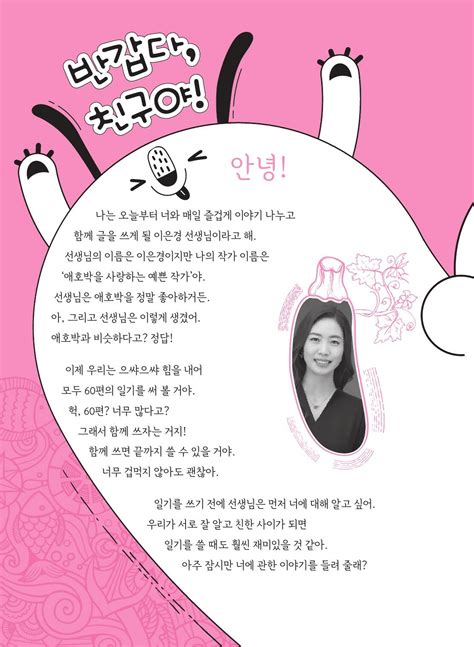 반갑다,
친구야!
안녕!
나는 오늘부터 너와 매일 즐겁게 이야기 나누고
함께 글을 쓰게 될 이은경 선생님이라고 해.
선생님의 이름은 이은경이지만 나의 작가 이름은
‘애호박을 사랑하는 예쁜 작가’야.
선생님은 애호박을 정말 좋아하거든.
아, 그리고 선생님은 이렇게 생겼어.
애호박과 비슷하다고? 정답!
이제 우리는 으쌰으쌰 힘을 내어
모두 60편의 일기를 써 볼 거야.
헉, 60편? 너무 많다고?
그래서 함께 쓰자는 거지!
함께 쓰면 끝까지 쓸 수 있을 거야.
너무 겁먹지 않아도 괜찮아.
일기를 쓰기 전에 선생님은 먼저 너에 대해 알고 싶어.
우리가 서로 잘 알고 친한 사이가 되면
일기를 쓸 때도 훨씬 재미있을 것 같아.
아주 잠시만 너에 관한 이야기를 들려 줄래?